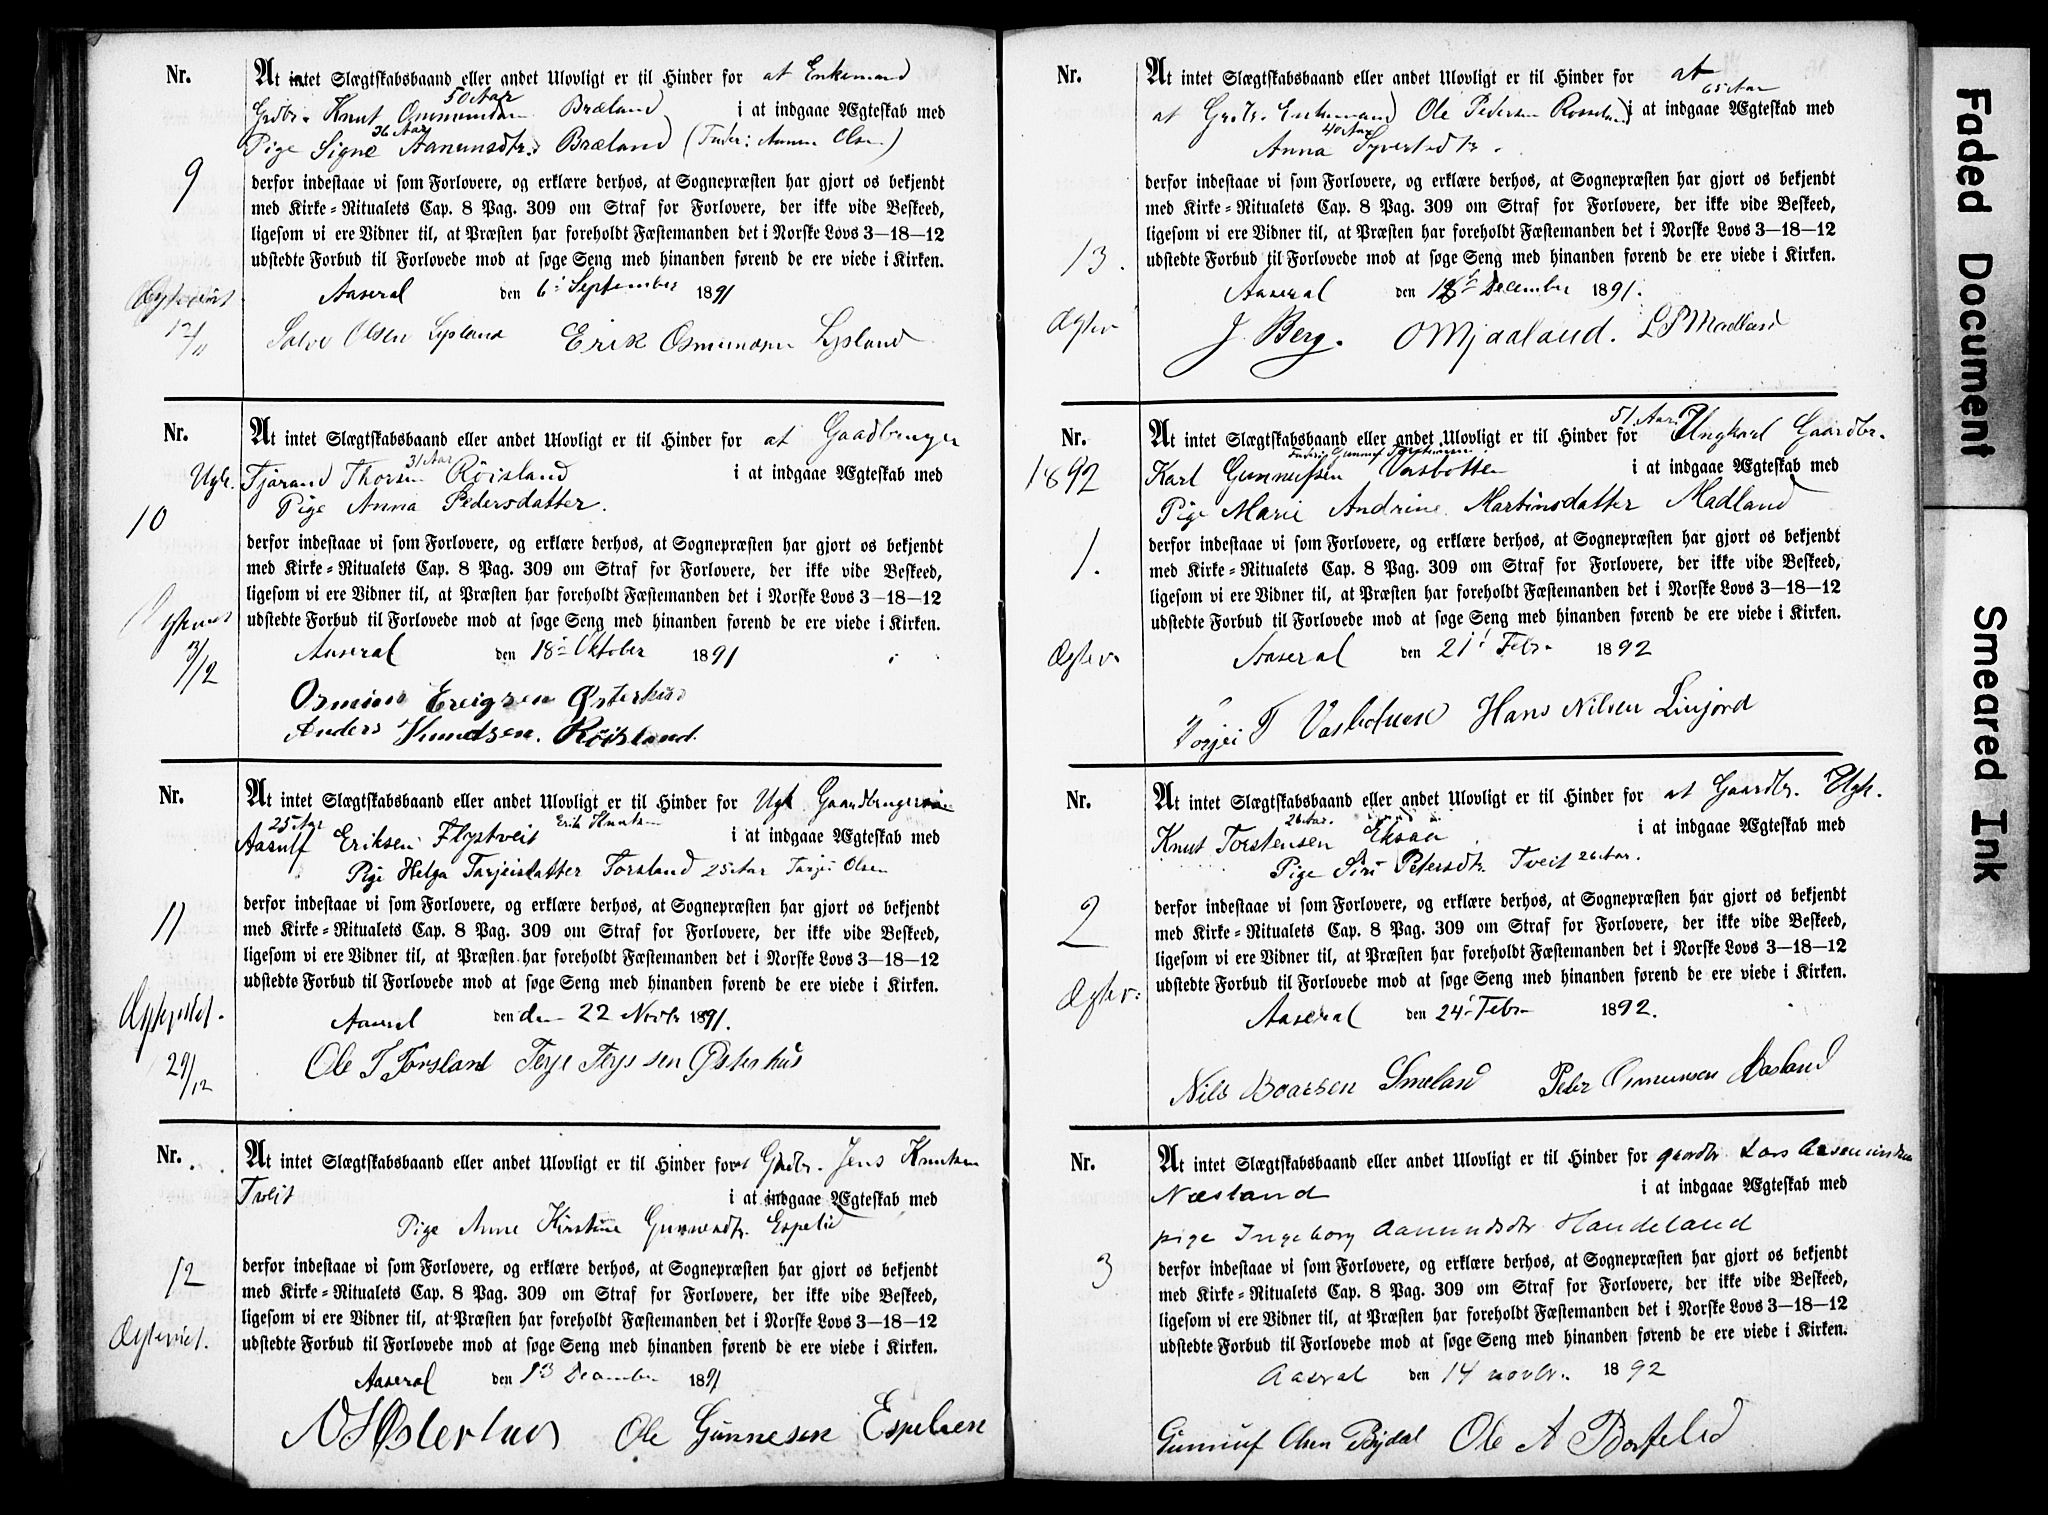 Nr.
At intet Slægtskabsbaand eller andet Ulovligt er til Hinder for at Enkemand
50 Aar
Grdbr. Knut Ommundsen Bræland i at indgaae Ægteskab med
36 Aar
Pige Signe Aanensdtr. Bræland (Fader: Aanen Olsen)
9
derfor indestaae vi som Forlovere, og erklære derhos, at Sognepræsten har gjort os bekjendt
med Kirke-Ritualets Cap. 8 Pag. 309 om Straf for Forlovere, der ikke vide Beskeed,
ligesom vi ere Vidner til, at Præsten har foreholdt Fæstemanden det i Norske Lovs 3-18-12
udstedte Forbud til Forlovede mod at søge Seng med hinanden førend de ere viede i Kirken.
Ægteviet
12/11
Aaseral den 6: September 1891
Salve Olsen Lysland Erik Osmundsen Lysland
Nr.
At intet Slægtskabsbaand eller andet Ulovligt er til Hinder for at Gaadbruger
31 Aar
Ugk. Tjøran Thorsen Røisland i at indgaae Ægteskab med
Pige Anna Pedersdatter.
10
derfor indestaae vi som Forlovere, og erklære derhos, at Sognepræsten har gjort os bekjendt
med Kirke-Ritualets Cap. 8 Pag. 309 om Straf for Forlovere, der ikke vide Beskeed,
ligesom vi ere Vidner til, at Præsten har foreholdt Fæstemanden det i Norske Lovs 3-18-12
udstedte Forbud til Forlovede mod at søge Seng med hinanden førend de ere viede i Kirken.
Ægteviet
3/12
Aaseral den 18: Oktober 1891
Osmund Ereigsen Østerhus
Anders Knudsen. Røisland
Nr.
At intet Slægtskabsbaand eller andet Ulovligt er til Hinder for Ugk Gaardbruger
25 Aar Erik Knutsen
Aasulf Eriksen Flystveit i at indgaae Ægteskab med
Pige Helga Tarjeisdatter Forsland 25 Aar Tarjei Olsen
11
derfor indestaae vi som Forlovere, og erklære derhos, at Sognepræsten har gjort os bekjendt
med Kirke-Ritualets Cap. 8 Pag. 309 om Straf for Forlovere, der ikke vide Beskeed,
ligesom vi ere Vidner til, at Præsten har foreholdt Fæstemanden det i Norske Lovs 3-18-12
udstedte Forbud til Forlovede mod at søge Seng med hinanden førend de ere viede i Kirken.
Ægteviet.
29/12
Aaseral den den 22 Novbr 1891.
Ole T Forsland Terje Terjesen Østerhus
Nr.
At intet Slægtskabsbaand eller andet Ulovligt er til Hinder for at Grdbr. Jens Knutsen
Tveit i at indgaae Ægteskab med
Pige Anne Kirstine Gunnesdtr. Espelid
12
derfor indestaae vi som Forlovere, og erklære derhos, at Sognepræsten har gjort os bekjendt
med Kirke-Ritualets Cap. 8 Pag. 309 om Straf for Forlovere, der ikke vide Beskeed,
ligesom vi ere Vidner til, at Præsten har foreholdt Fæstemanden det i Norske Lovs 3-18-12
udstedte Forbud til Forlovede mod at søge Seng med hinanden førend de ere viede i Kirken.
Ægteviet.
Aaseral den 13 December 1891
Østerhus Ole Gunnesen Espelien
Nr.
At intet Slægtskabsbaand eller andet Ulovligt er til Hinder for at
65 Aar
at Grdbr. Enkemand Ole Pedersen Rosseland i at indgaae Ægteskab med
40 Aar
Anna Syvertsdtr.
derfor indestaae vi som Forlovere, og erklære derhos, at Sognepræsten har gjort os bekjendt
med Kirke-Ritualets Cap. 8 Pag. 309 om Straf for Forlovere, der ikke vide Beskeed,
ligesom vi ere Vidner til, at Præsten har foreholdt Fæstemanden det i Norske Lovs 3-18-12
13.
udstedte Forbud til Forlovede mod at søge Seng med hinanden førend de ere viede i Kirken.
Aaseral den December 1891.
Ægtev
J. Berg. O Mjaaland. Madland
Nr.
51 Aar
At intet Slægtskabsbaand eller andet Ulovligt er til Hinder for Ungkarl Gaardbr.
1892
Karl Gunnufsen Vasbotten i at indgaae Ægteskab med
Pige Marie Andrine Martinsdatter Madland
1.
derfor indestaae vi som Forlovere, og erklære derhos, at Sognepræsten har gjort os bekjendt
med Kirke-Ritualets Cap. 8 Pag. 309 om Straf for Forlovere, der ikke vide Beskeed,
ligesom vi ere Vidner til, at Præsten har foreholdt Fæstemanden det i Norske Lovs 3-18-12
udstedte Forbud til Forlovede mod at søge Seng med hinanden førend de ere viede i Kirken.
Ægtev.
Aaseral den 21' Febr. 1892
Torjei T Hans Nilsen Linjord
Nr.
At intet Slægtskabsbaand eller andet Ulovligt er til Hinder for at Gaardbr. Ugk.
26 Aar.
Knut Torstensen Eksaa i at indgaae Ægteskab med
Pige Siri Petersdtr. Tveit 26 Aar.
2
derfor indestaae vi som Forlovere, og erklære derhos, at Sognepræsten har gjort os bekjendt
med Kirke-Ritualets Cap. 8 Pag. 309 om Straf for Forlovere, der ikke vide Beskeed,
ligesom vi ere Vidner til, at Præsten har foreholdt Fæstemanden det i Norske Lovs 3-18-12
udstedte Forbud til Forlovede mod at søge Seng med hinanden førend de ere viede i Kirken.
Ægtev:
Aaseral den 24' Febr. 1892.
Nils Boarsen Smeland Peder Omunsen Aasland
Nr.
At intet Slægtskabsbaand eller andet Ulovligt er til Hinder for gaardbr Lars Aasmundsen
Næsland i at indgaae Ægteskab med
pige Ingeborg Aamundsdtr Handeland
3
derfor indestaae vi som Forlovere, og erklære derhos, at Sognepræsten har gjort os bekjendt
med Kirke-Ritualets Cap. 8 Pag. 309 om Straf for Forlovere, der ikke vide Beskeed,
ligesom vi ere Vidner til, at Præsten har foreholdt Fæstemanden det i Norske Lovs 3-18-12
udstedte Forbud til Forlovede mod at søge Seng med hinanden førend de ere viede i Kirken.
Aaseral den 14 novbr. 1892
Gunnuf Olsen Bydal Ole A
Faded Document
Smeared Ink